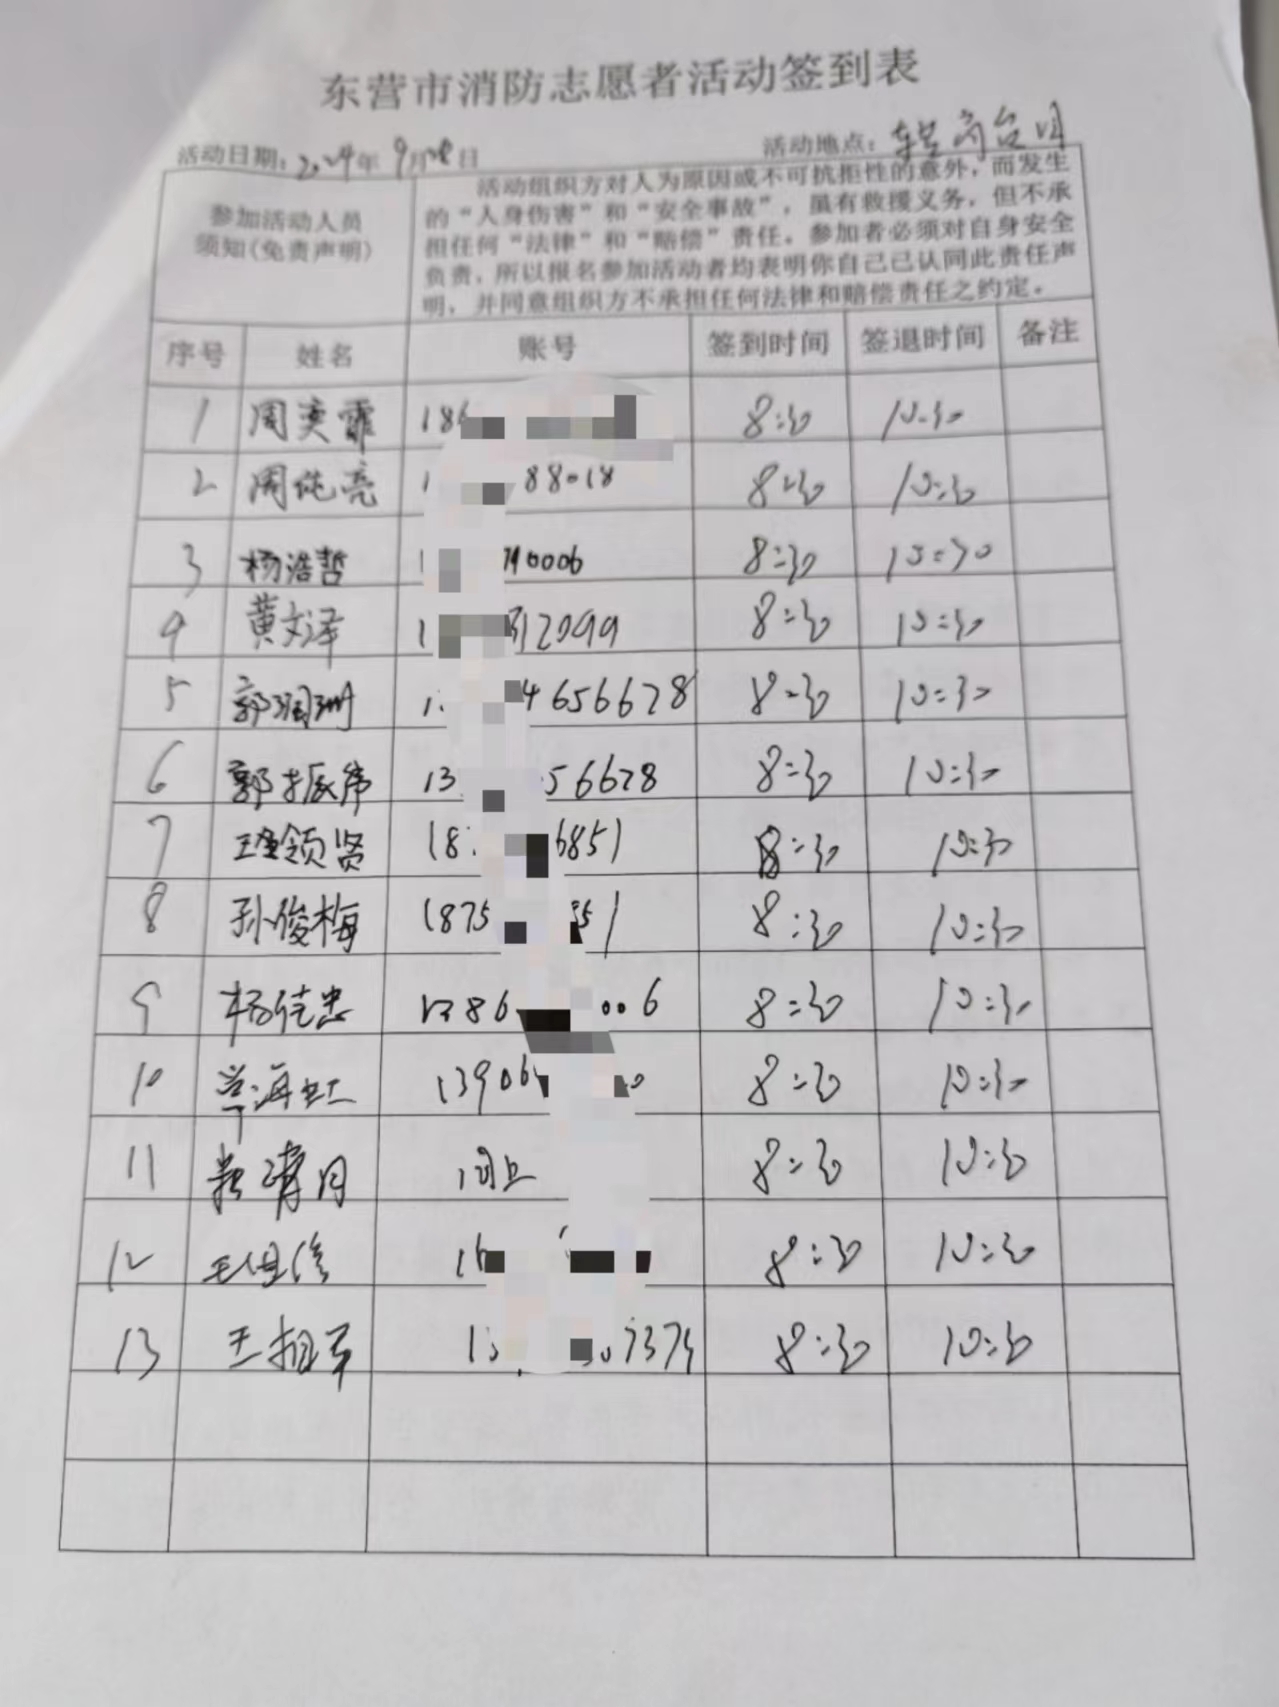 东营市消防志愿者活动签到表
活动日期：2024年9月28日 活动地点：
参加活动人员
须知(免责声明)
活动组织方对人为原因或不可抗拒性的意外，而发生
的“人身伤害”和“安全事故”，虽有救援义务，但不承
担任何“法律”和“赔偿”责任。参加者必须对自身安全
负责，所以报名参加活动者均表明你自己已认同此责任声
明，并同意组织方不承担任何法律和赔偿责任之约定。
序号 姓名 账号 签到时间 签退时间 备注
1 周奕霏 186 8:30 10:30
2 周纯亮 1 88018 8:30 10:30
3 杨浩哲 1 90006 8:30 10:30
4 黄文泽 1 312099 8:30 10:30
5 郭润珊 1 4656628 8:30 10:30
6 郭振伟 13 56628 8:30 10:30
7 领贤 18 6851 8:30 10:30
8 孙俊梅 1875 51 8:30 10:30
9 杨佳忠 1386 006 8:30 10:30
10 单海虹 1390 0 8:30 10:30
11 同上 8:30 10:30
12 王 1 8:30 10:30
13 王相军 13 07375 8:30 10:30